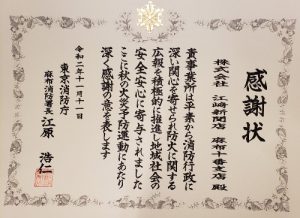 感謝状
株式会社 江崎新聞店 麻布十番支店 殿
貴事業所は平素から消防行政に
深い関心を寄せられ防火に関する
広報を積極的に推進し地域社会の
安全安心に寄与されました
ここに秋の火災予防運動にあたり
深く感謝の意を表します
令和二年十一月十一日
東京消防庁
麻布消防署長
江原 浩仁